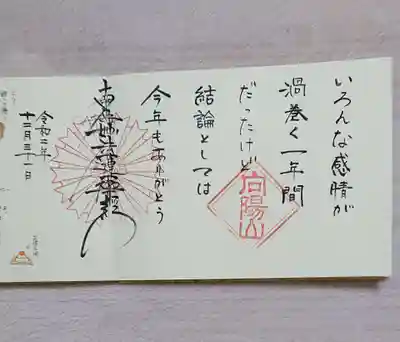 いろんな感情が
渦巻く一年間
だったけど
向陽山
結論としては
今年もありがとう
南無妙法蓮華経
令和二年
十二月三十一日